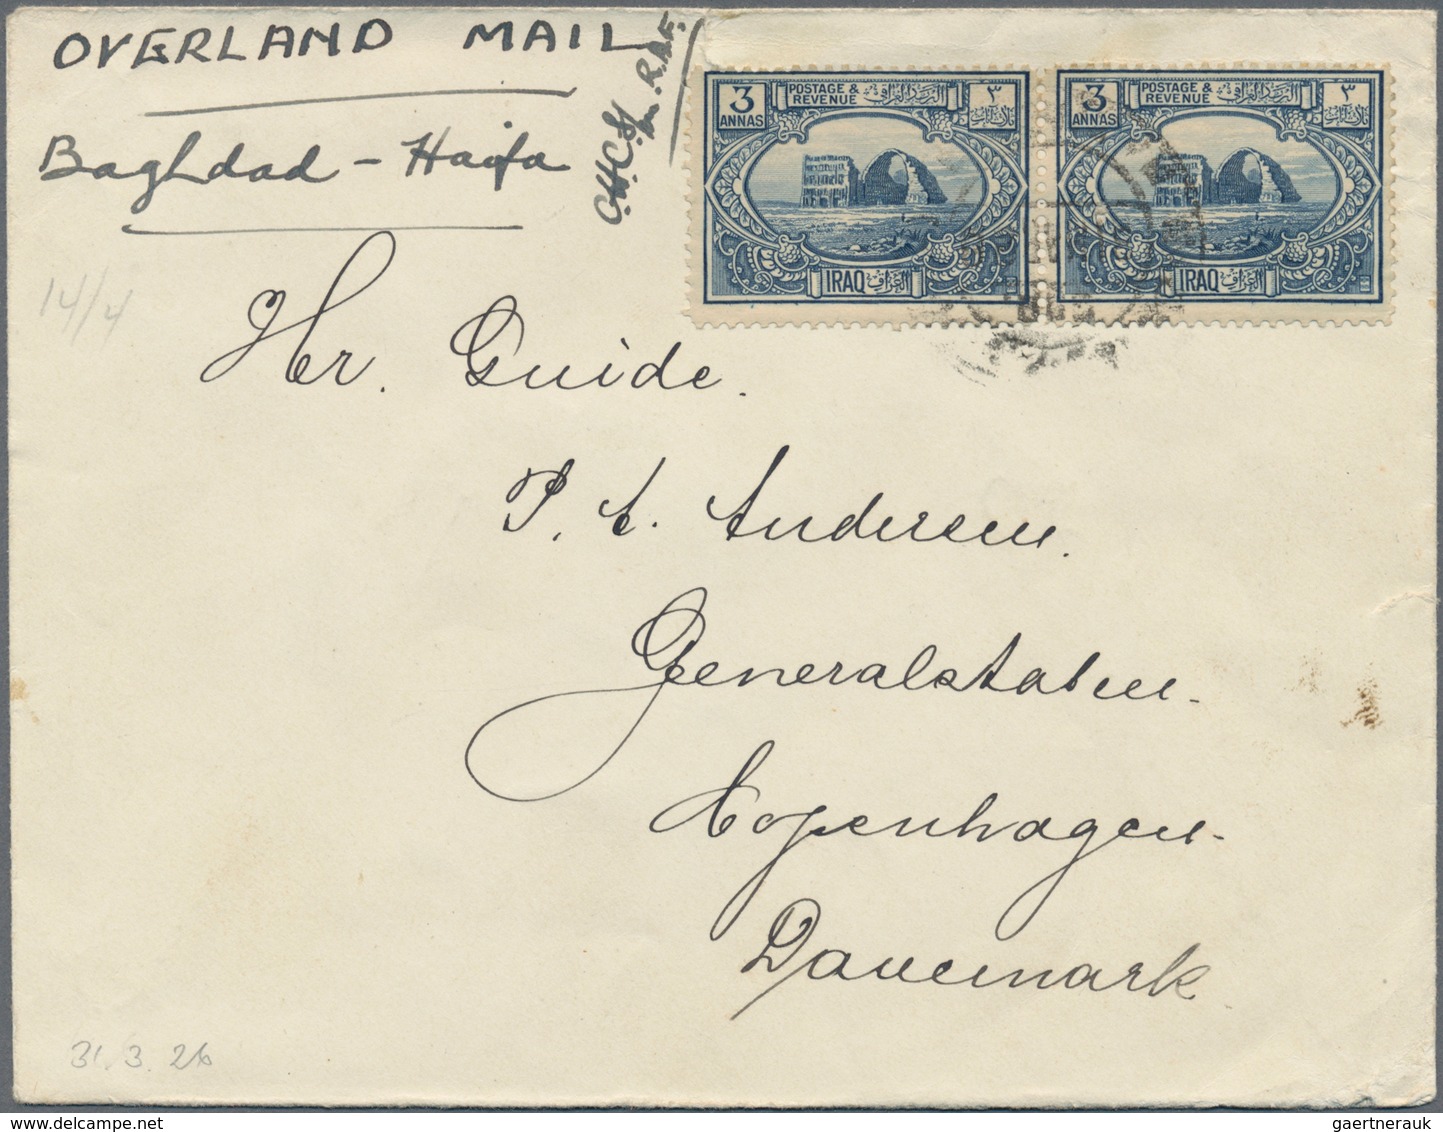 OVERLAND MAIL
Baghdad - Haifa
R.A.F.
3 ANNAS
POSTAGE & REVENUE
٣
IRAQ
العراق
3 ANNAS
POSTAGE & REVENUE
٣
IRAQ
العراق
14/4
Hr. Guide.
P. A. Andersen.
Generalstaben.
Kopenhagen.
Danemark
31.3.26
gaertnerauk